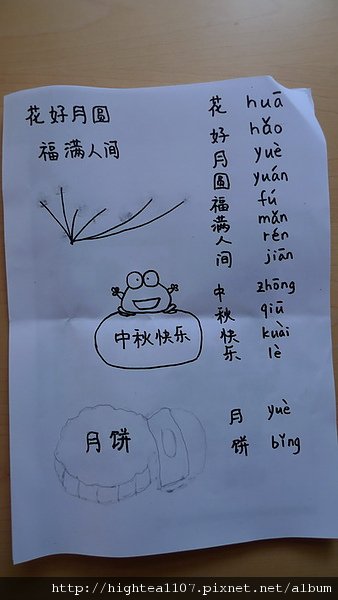 花好月圆
福满人间
花 huā
好 hǎo
月 yuè
圆 yuán
福 fú
满 mǎn
人 rén
间 jiān
中秋快乐
中 zhōng
秋 qiū
快 kuài
乐 lè
月饼
月 yuè
饼 bǐng
http://hightea1107.pixnet.net/album